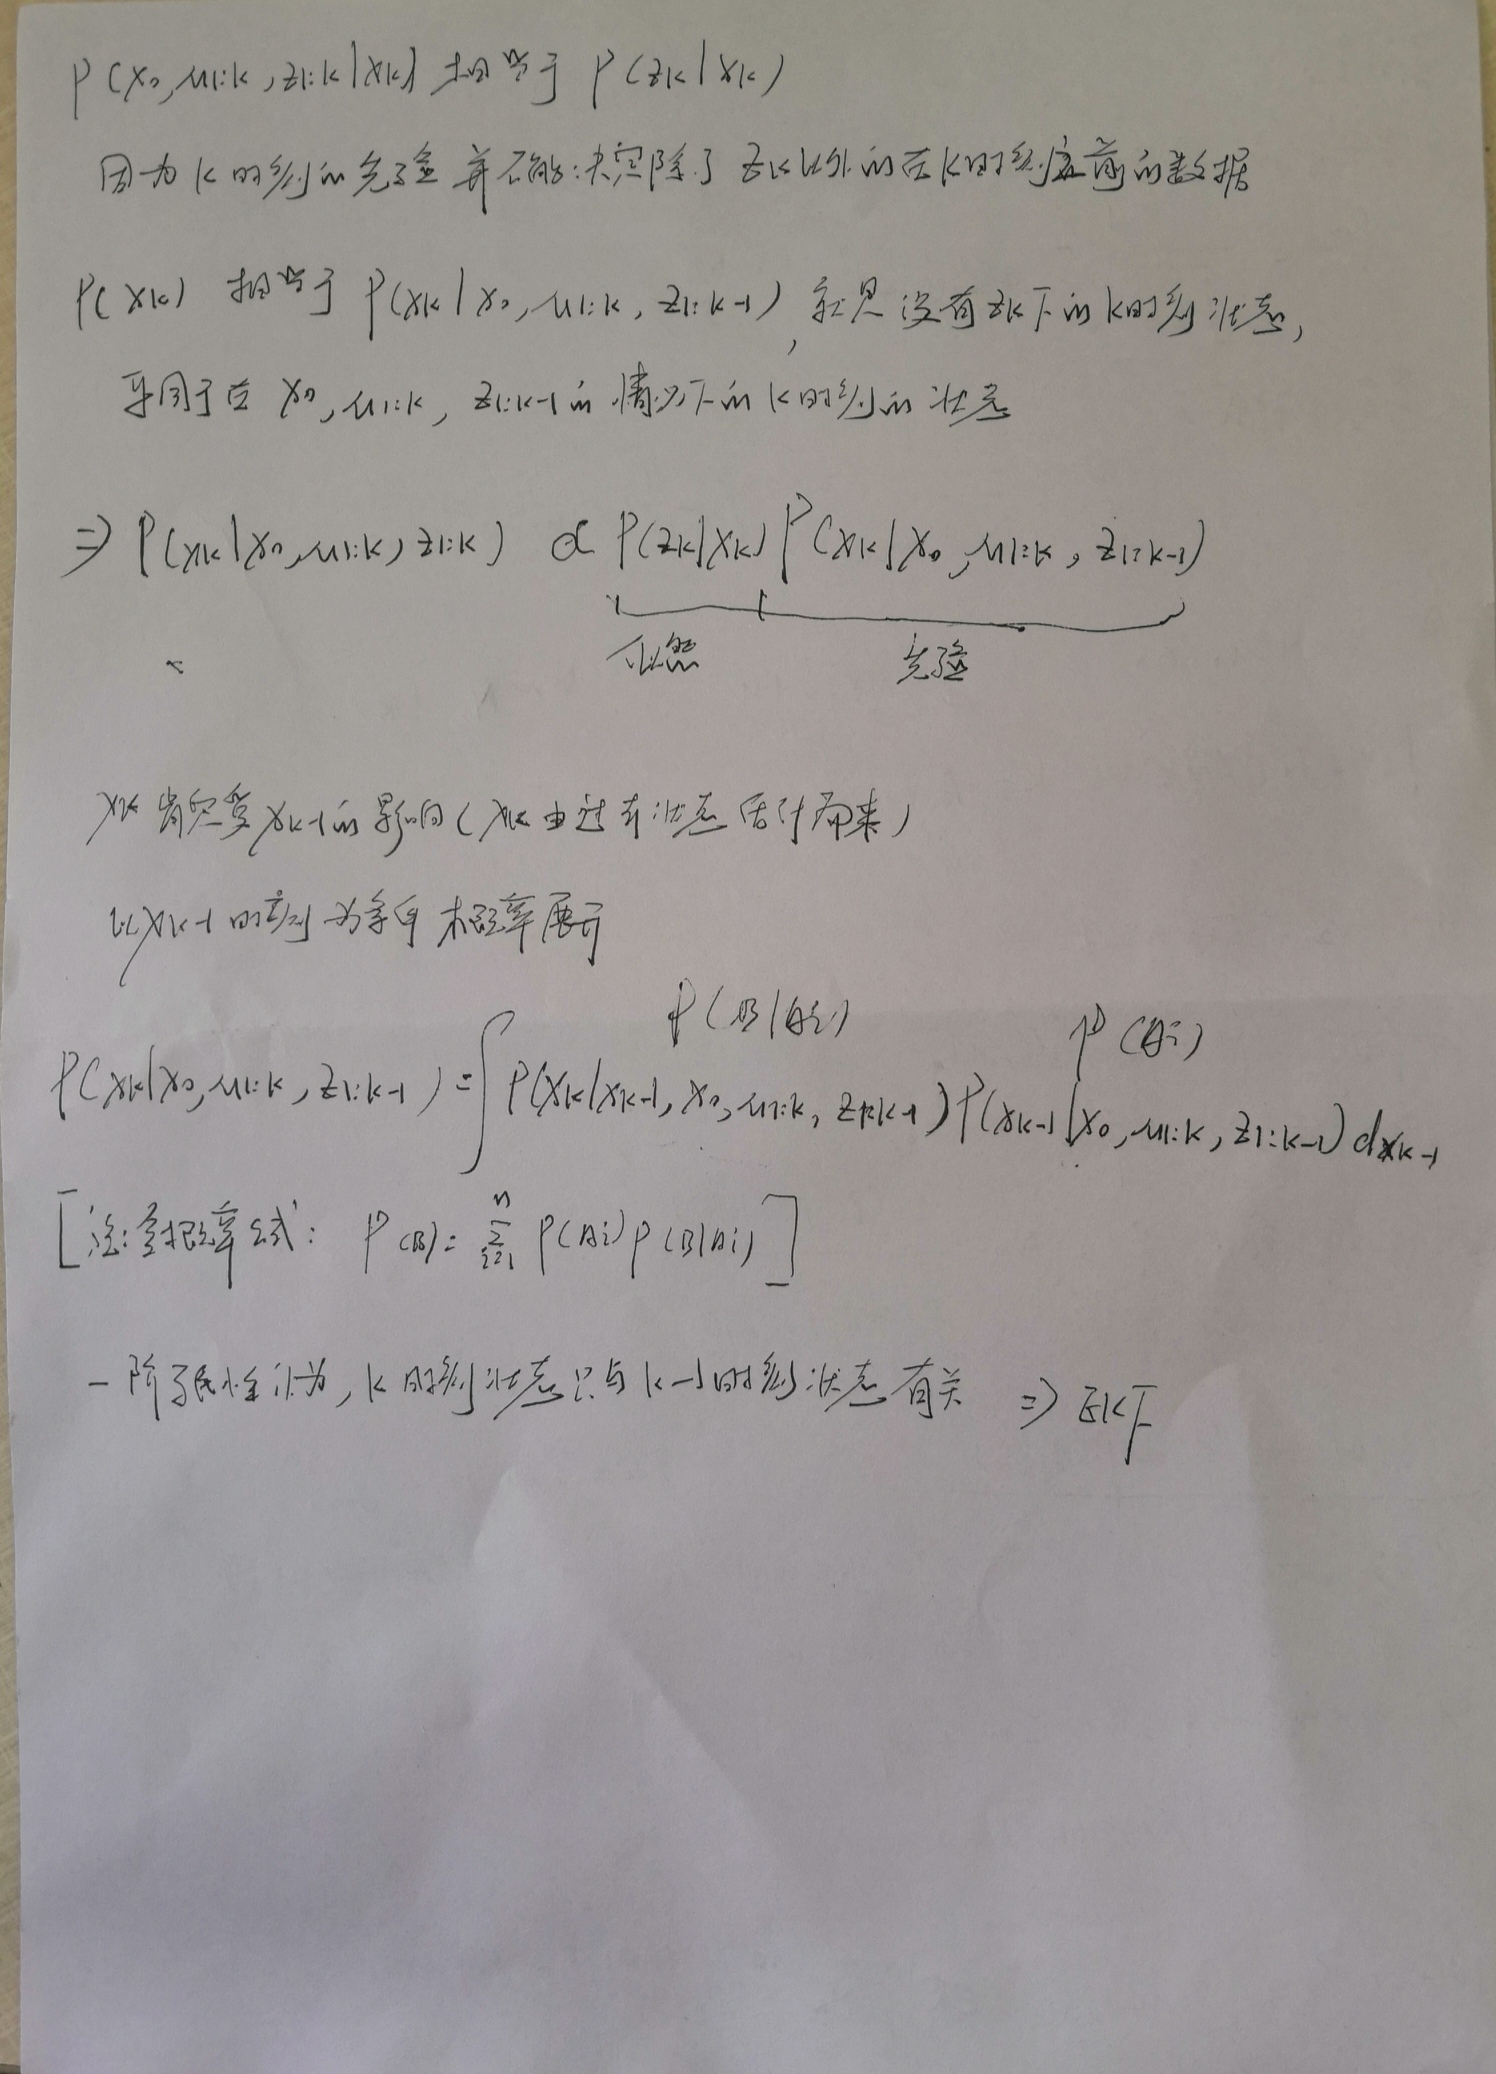 P(x0,u1:k,z1:k|xk) 相当于 P(zk|xk)
因为 k 时刻的先验并不能决定除了 zk 以外的在 k 时刻之前的数据
P(xk) 相当于 P(xk|x0,u1:k,z1:k-1), 就是没有zk下的k时刻状态,
等同于在 x0,u1:k,z1:k-1的情况下的k时刻的状态
⇒ P(xk|x0,u1:k,z1:k) ∝ P(zk|xk) P(xk|x0,u1:k,z1:k-1)
似然 先验
xk 肯定受xk-1的影响(xk由过去状态估计而来)
以xk-1时刻为条件概率展开
P(B|Ai) P(Ai)
P(xk|x0,u1:k,z1:k-1) = ∫P(xk|xk-1,x0,u1:k,z1:k-1)P(xk-1|x0,u1:k,z1:k-1)dxk-1
[注:全概率公式: P(B)=Σ(i=1..n) P(Ai)P(B|Ai)]
一阶马氏性认为, k 时刻状态只与k-1时刻状态有关 ⇒ EKF